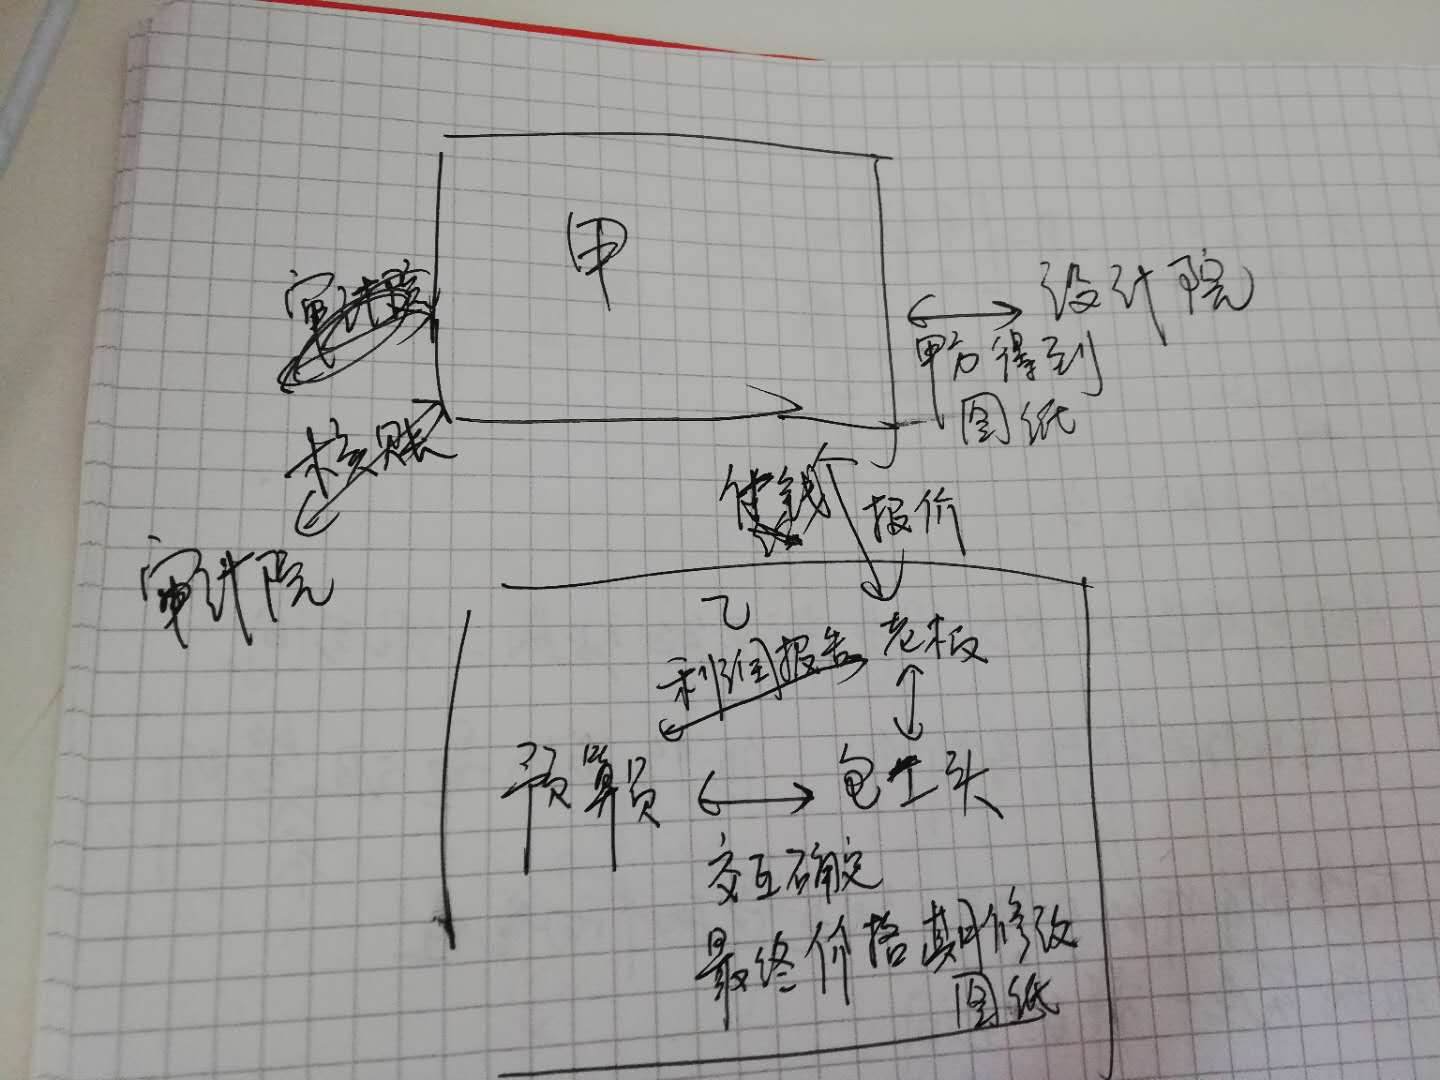 甲
设计院
甲方得到
图纸
核账
审计院
钱
报价
乙
利润报告
老板
预算员
包工头
交互确定
最终价格
修改
图纸